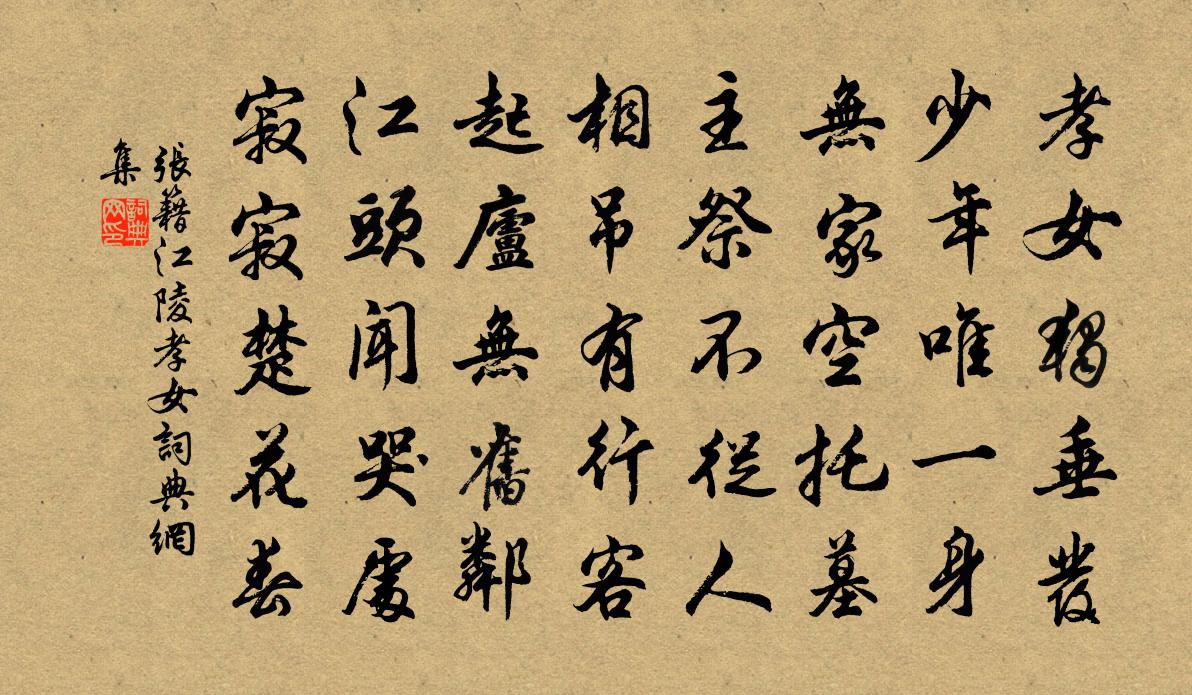 孝女獨垂發
少年唯一身
無家空托墓
主祭不從人
相吊有行客
起廬無舊鄰
江頭聞哭處
寂寂楚花春
張籍江陵孝女詞典網
集
詞典
网印